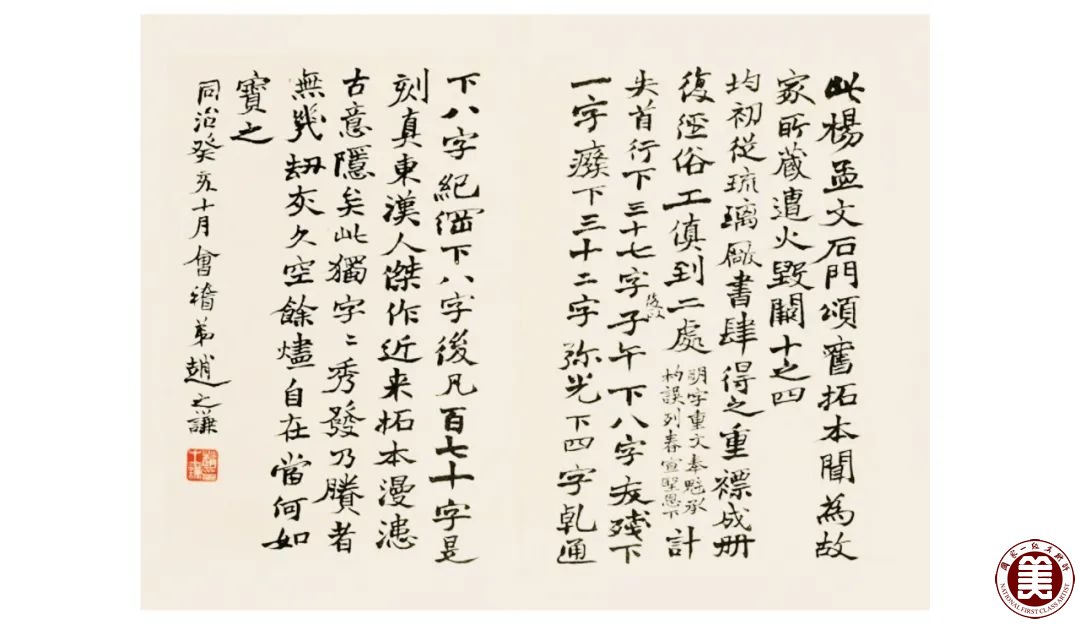 此楊孟文石門頌舊拓本聞為故
家所藏遭火毀闕十之四
均初從琉璃厰書肆得之重褾成冊
復經俗工傎到二處明字重文奉魁承杓誤列春宣聖恩下計
失首行下三十七字子午下八字後改夭殘下
一字癈下三十二字弥光下四字乹通
下八字紀綱下八字後凡百七十字是
刻真東漢人傑作近来拓本漫漶
古意隱矣此獨字〻秀發乃賸者
無幾劫灰久空餘燼自在當何如
寶之
同治癸亥十月會稽弟趙之謙
國家一級美術師
美
NATIONAL FIRST CLASS ARTIST